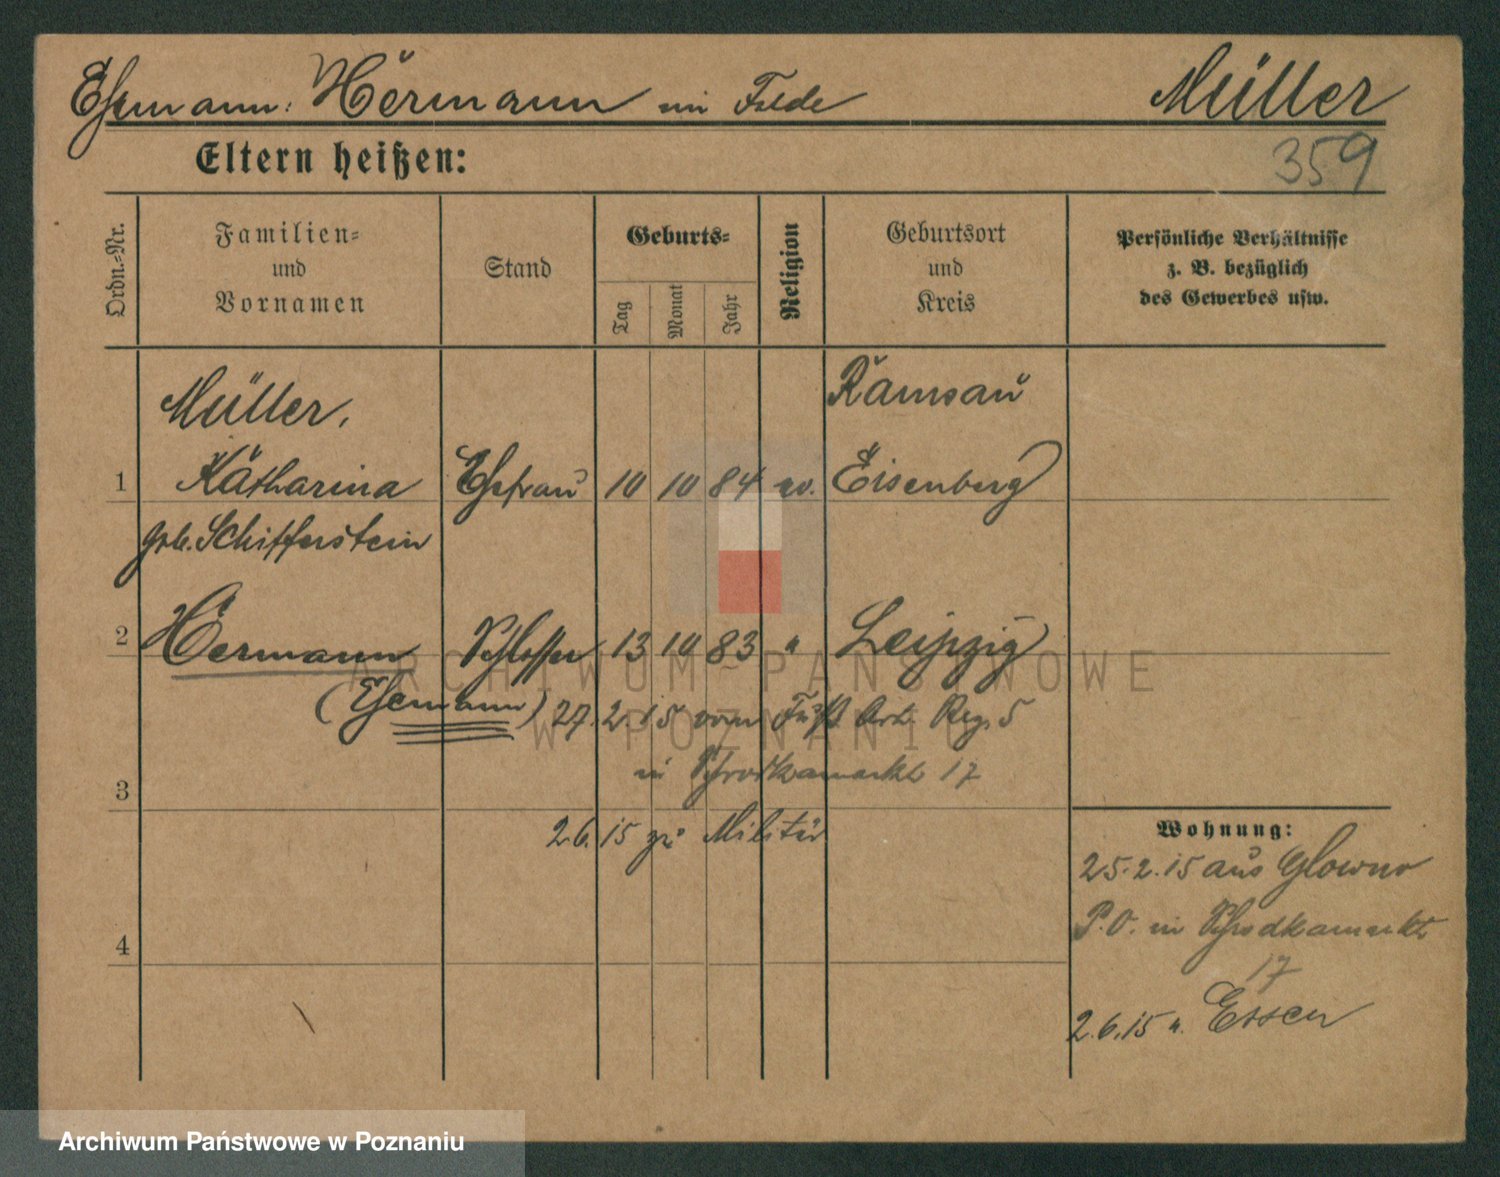 Ehemann: Hermann im Felde Müller
Eltern heißen:
359
Ordn.-Nr.
Familien-
und
Vornamen
Stand
Geburts-
Tag
Monat
Jahr
Religion
Geburtsort
und
Kreis
Persönliche Verhältnisse
z. B. bezüglich
des Gewerbes usw.
Ramsau
Müller,
1 Katharina Ehefrau 10 10 84 ev. Eisenberg
geb. Schifferstein
2 Hermann Schlosser 13 10 83 " Leipzig
(Ehemann) 27.2.15 vom Fuß Art. Reg. 5
in Schrodkamarkt 17
3
2.6.15 zu Militär
Wohnung:
25.2.15 aus Glowno
P.O. in Schrodkamarkt
17
4
2.6.15 n. Essen
ARCHIWUM PAŃSTWOWE
W POZNANIU
Archiwum Państwowe w Poznaniu